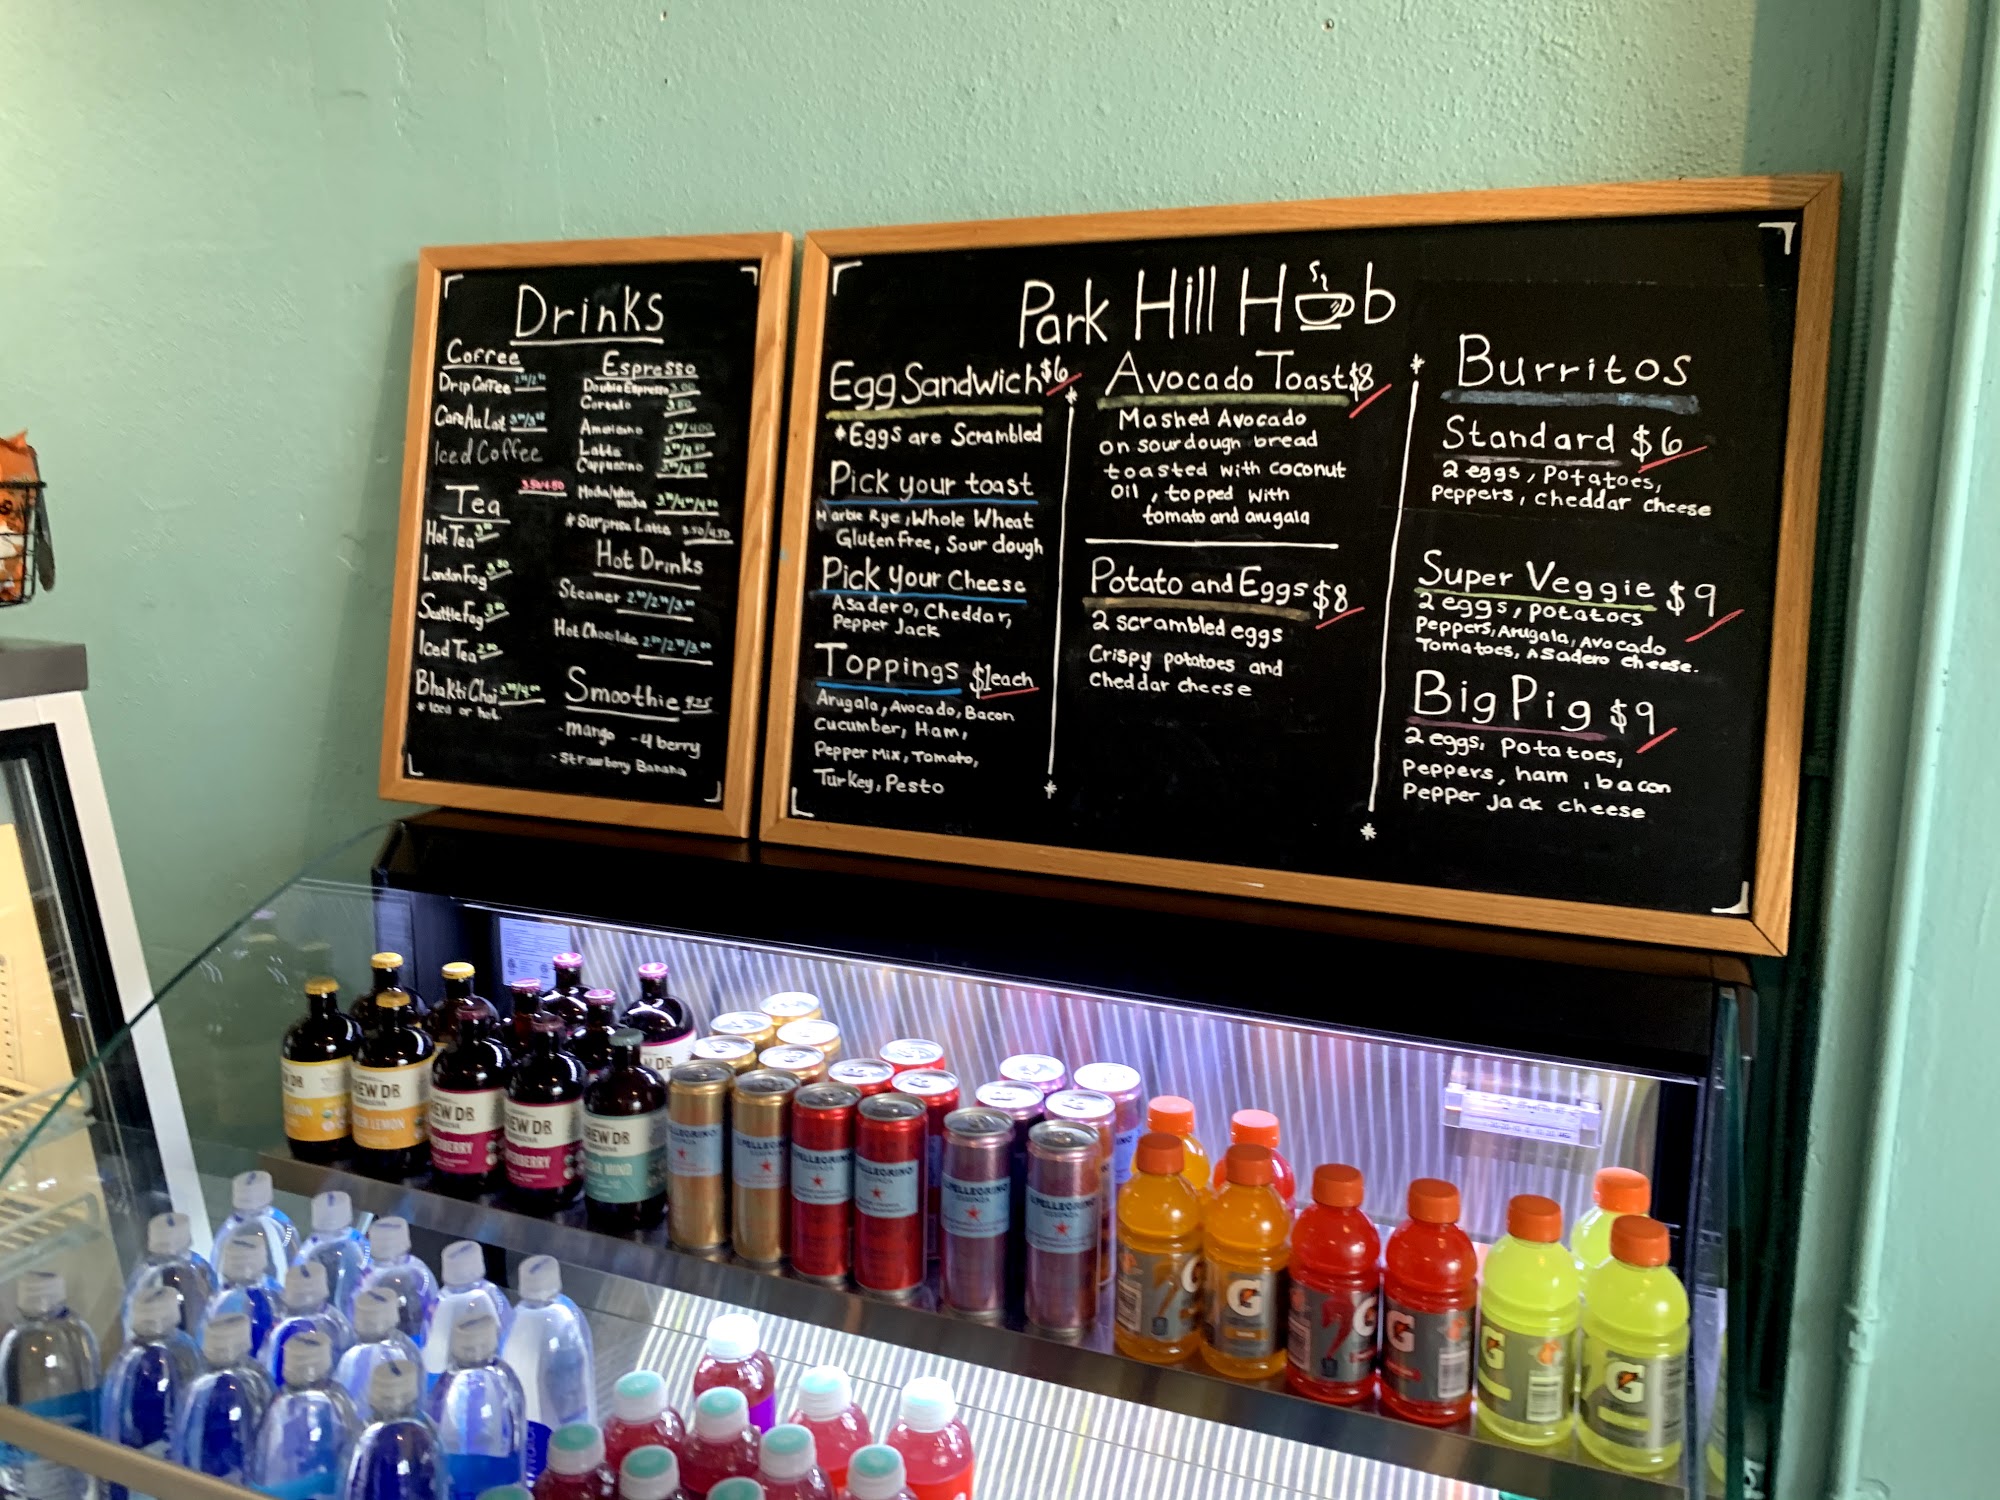 Drinks
Coffee
Drip Coffee
Cafe Au Lait
Iced Coffee
3.50/4.50
Tea
Hot Tea
London Fog
Seattle Fog
Iced Tea
Bhakti Chai
* Iced or hot.
Espresso
Double Espresso 3.00
Cortado 3.50
Americano
Latte
Cappuccino
Mocha/White
mocha
*Surprise Latte 3.50/4.50
Hot Drinks
Steamer
Hot Chocolate
Smoothie 4.25
- mango - 4 berry
- Strawberry Banana
Park Hill Hub
Egg Sandwich $6
*Eggs are Scrambled
Pick your toast
Marble Rye, Whole Wheat
Gluten Free, Sour dough
Pick your Cheese
Asadero, Cheddar,
Pepper Jack
Toppings $1 each
Arugala, Avocado, Bacon
Cucumber, Ham,
Pepper Mix, Tomato,
Turkey, Pesto
Avocado Toast $8
Mashed Avocado
on sourdough bread
toasted with coconut
oil, topped with
tomato and arugala
Potato and Eggs $8
2 scrambled eggs
Crispy potatoes and
Cheddar cheese
Burritos
Standard $6
2 eggs, Potatoes,
Peppers, cheddar cheese
Super Veggie $9
2 eggs, potatoes
Peppers, Arugala, Avocado
Tomatoes, Asadero cheese.
Big Pig $9
2 eggs, potatoes,
Peppers, ham, bacon
Pepper jack cheese
S.PELLEGRINO
ESSENZA
G